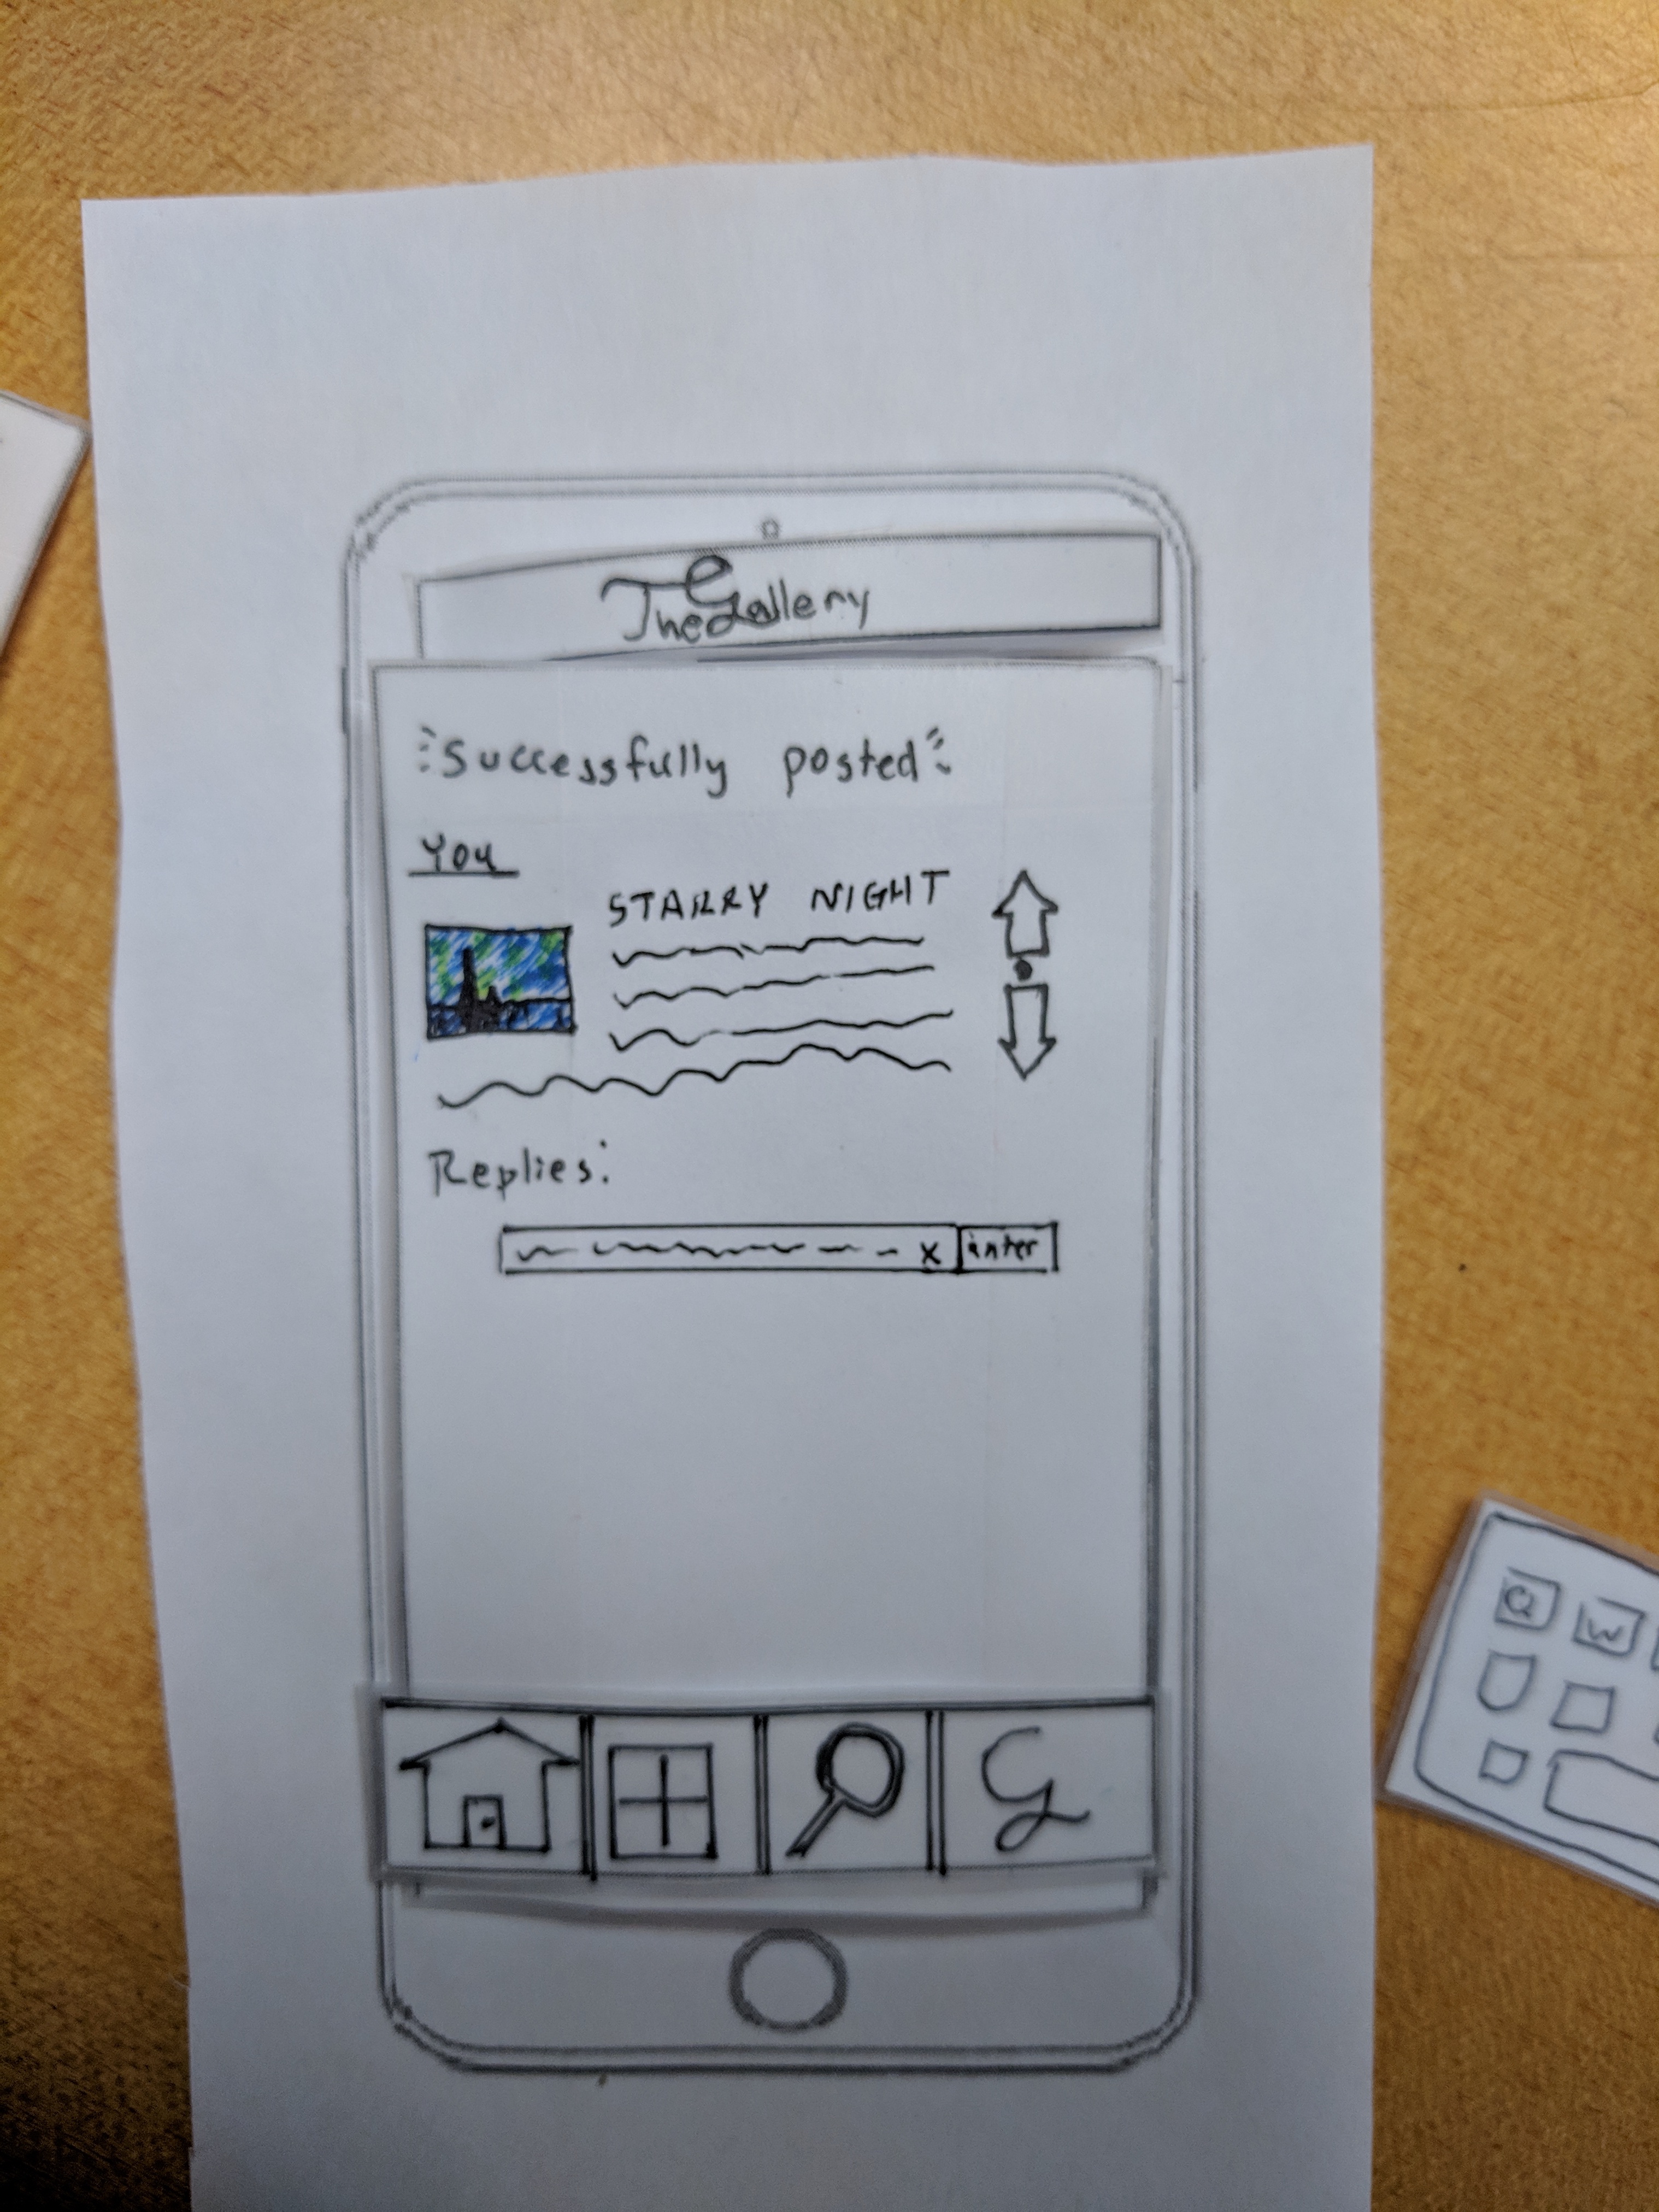 The Gallery
Successfully posted
You
STARRY NIGHT
Replies:
x enter
G
Q W